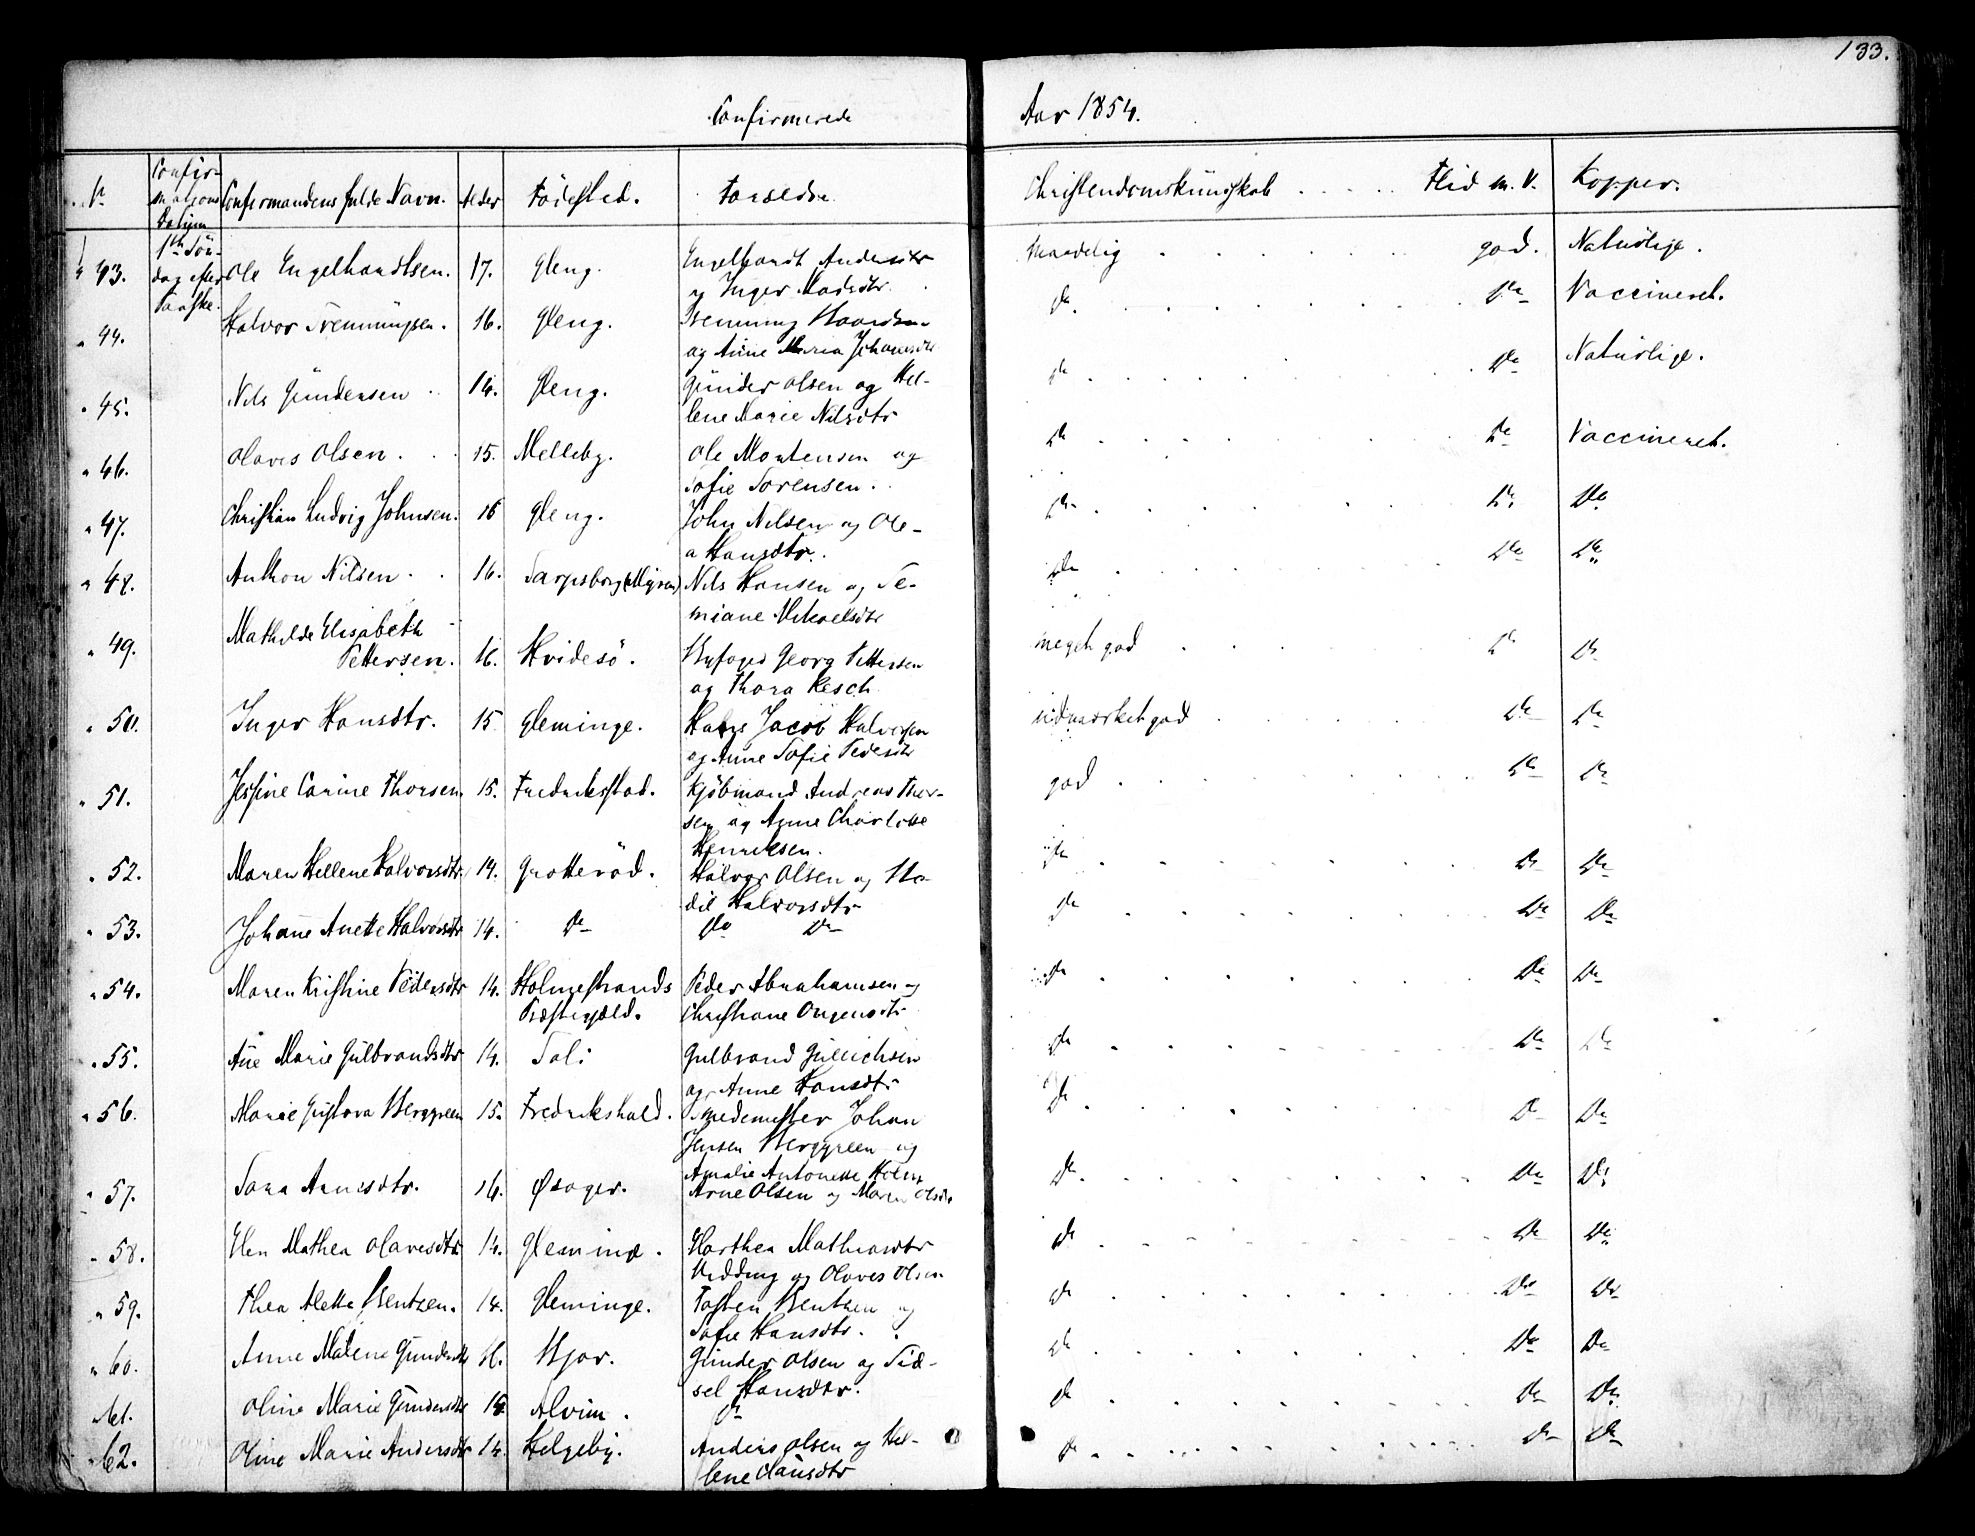 133.
Confirmerede Aar 1854.
№ Confirmations Datum Confirmandens fulde Navn. Alder Fødested. Forældre Christendomskundskab . . . . . Flid m. V. Kopper.
43. 1ste Søndag efter Paaske. Ole Engelhardtsen. 17. Gleng. Engelhardt Andersen og Inger Madsdtr. Maadelig . . . . god. Naturlige.
44. Halvor Fremmingsen. 16. Gleng. Fremming og Anne Maria Johannesdtr Do. Do Vaccineret.
45. Nils Gundersen 14. Gleng. Gunder Olsen og Hellene Marie Nilsdtr Do Do Naturlige.
46. Olaves Olsen. 15. Melleby. Ole Mortensen og Sofie Sorensen. Do Do Vaccineret.
47. Christian Ludvig Johnsen. 16 Gleng. John Nilsen og Olea Hansdtr. Do Do Do
48. Anthon Nilsen. 16. Sarpsborg Nils Hansen og Do Do Do
49. Mathilde Elisabeth Pettersen. 16. Hvidesö. Byfoged Georg Pettersen og Thora Resch meget god Do Do
50. Inger Hansdtr. 15 Gleminge. Hans Jacob Halvorsen og Anne Sofie Pedersdtr udmærket god Do Do
51. Jessine Carine Thorsen. 15. Fredrikstad. Kjøbmand Andreas Thorsen og Anne Charlotte Henriksen. god Do Do
52. Maren Hellene Halvorsdtr. 14. Grotteröd. Halvor Olsen og Halvorsdtr Do Do Do
53. Johanne Anette Halvorsdtr 14. Do Do Do Do Do Do
54. Maren Kristine Pedersdtr 14. Holmestrands Præstegjæld. Peder Abrahamsen og Christiane Do Do Do
55. Ane Marie Gulbrandsdtr 14. Gulbrand Gullichsen og Anne Hansdtr Do Do Do
56. Marie Gustava Berggreen 15. Fredrikshald. Smedemester Johan Jensen Berggreen og Amalie Antonette Holm Do Do Do
57. Sara Arnesdtr. 16. Arne Olsen og Maren Olsdtr Do Do Do
58. Elen Mathea Olavesdtr 14. Gleminge. Marthea Mathiasdtr og Olaves Olsen Do Do Do
59. Thea Alette Bentzen. 14. Gleminge. Tosten Bentzen og Sofie Hansdtr. Do Do Do
60. Anne Malene Gundersdtr Gunder Olsen og Sidsel Hansdtr. Do Do Do
61. Oline Marie Gundersdtr Alvim. Do Do Do Do
62. Oline Marie Andersdtr 14. Helgeby. Anders Olsen og Hellene Clausdtr Do Do Do